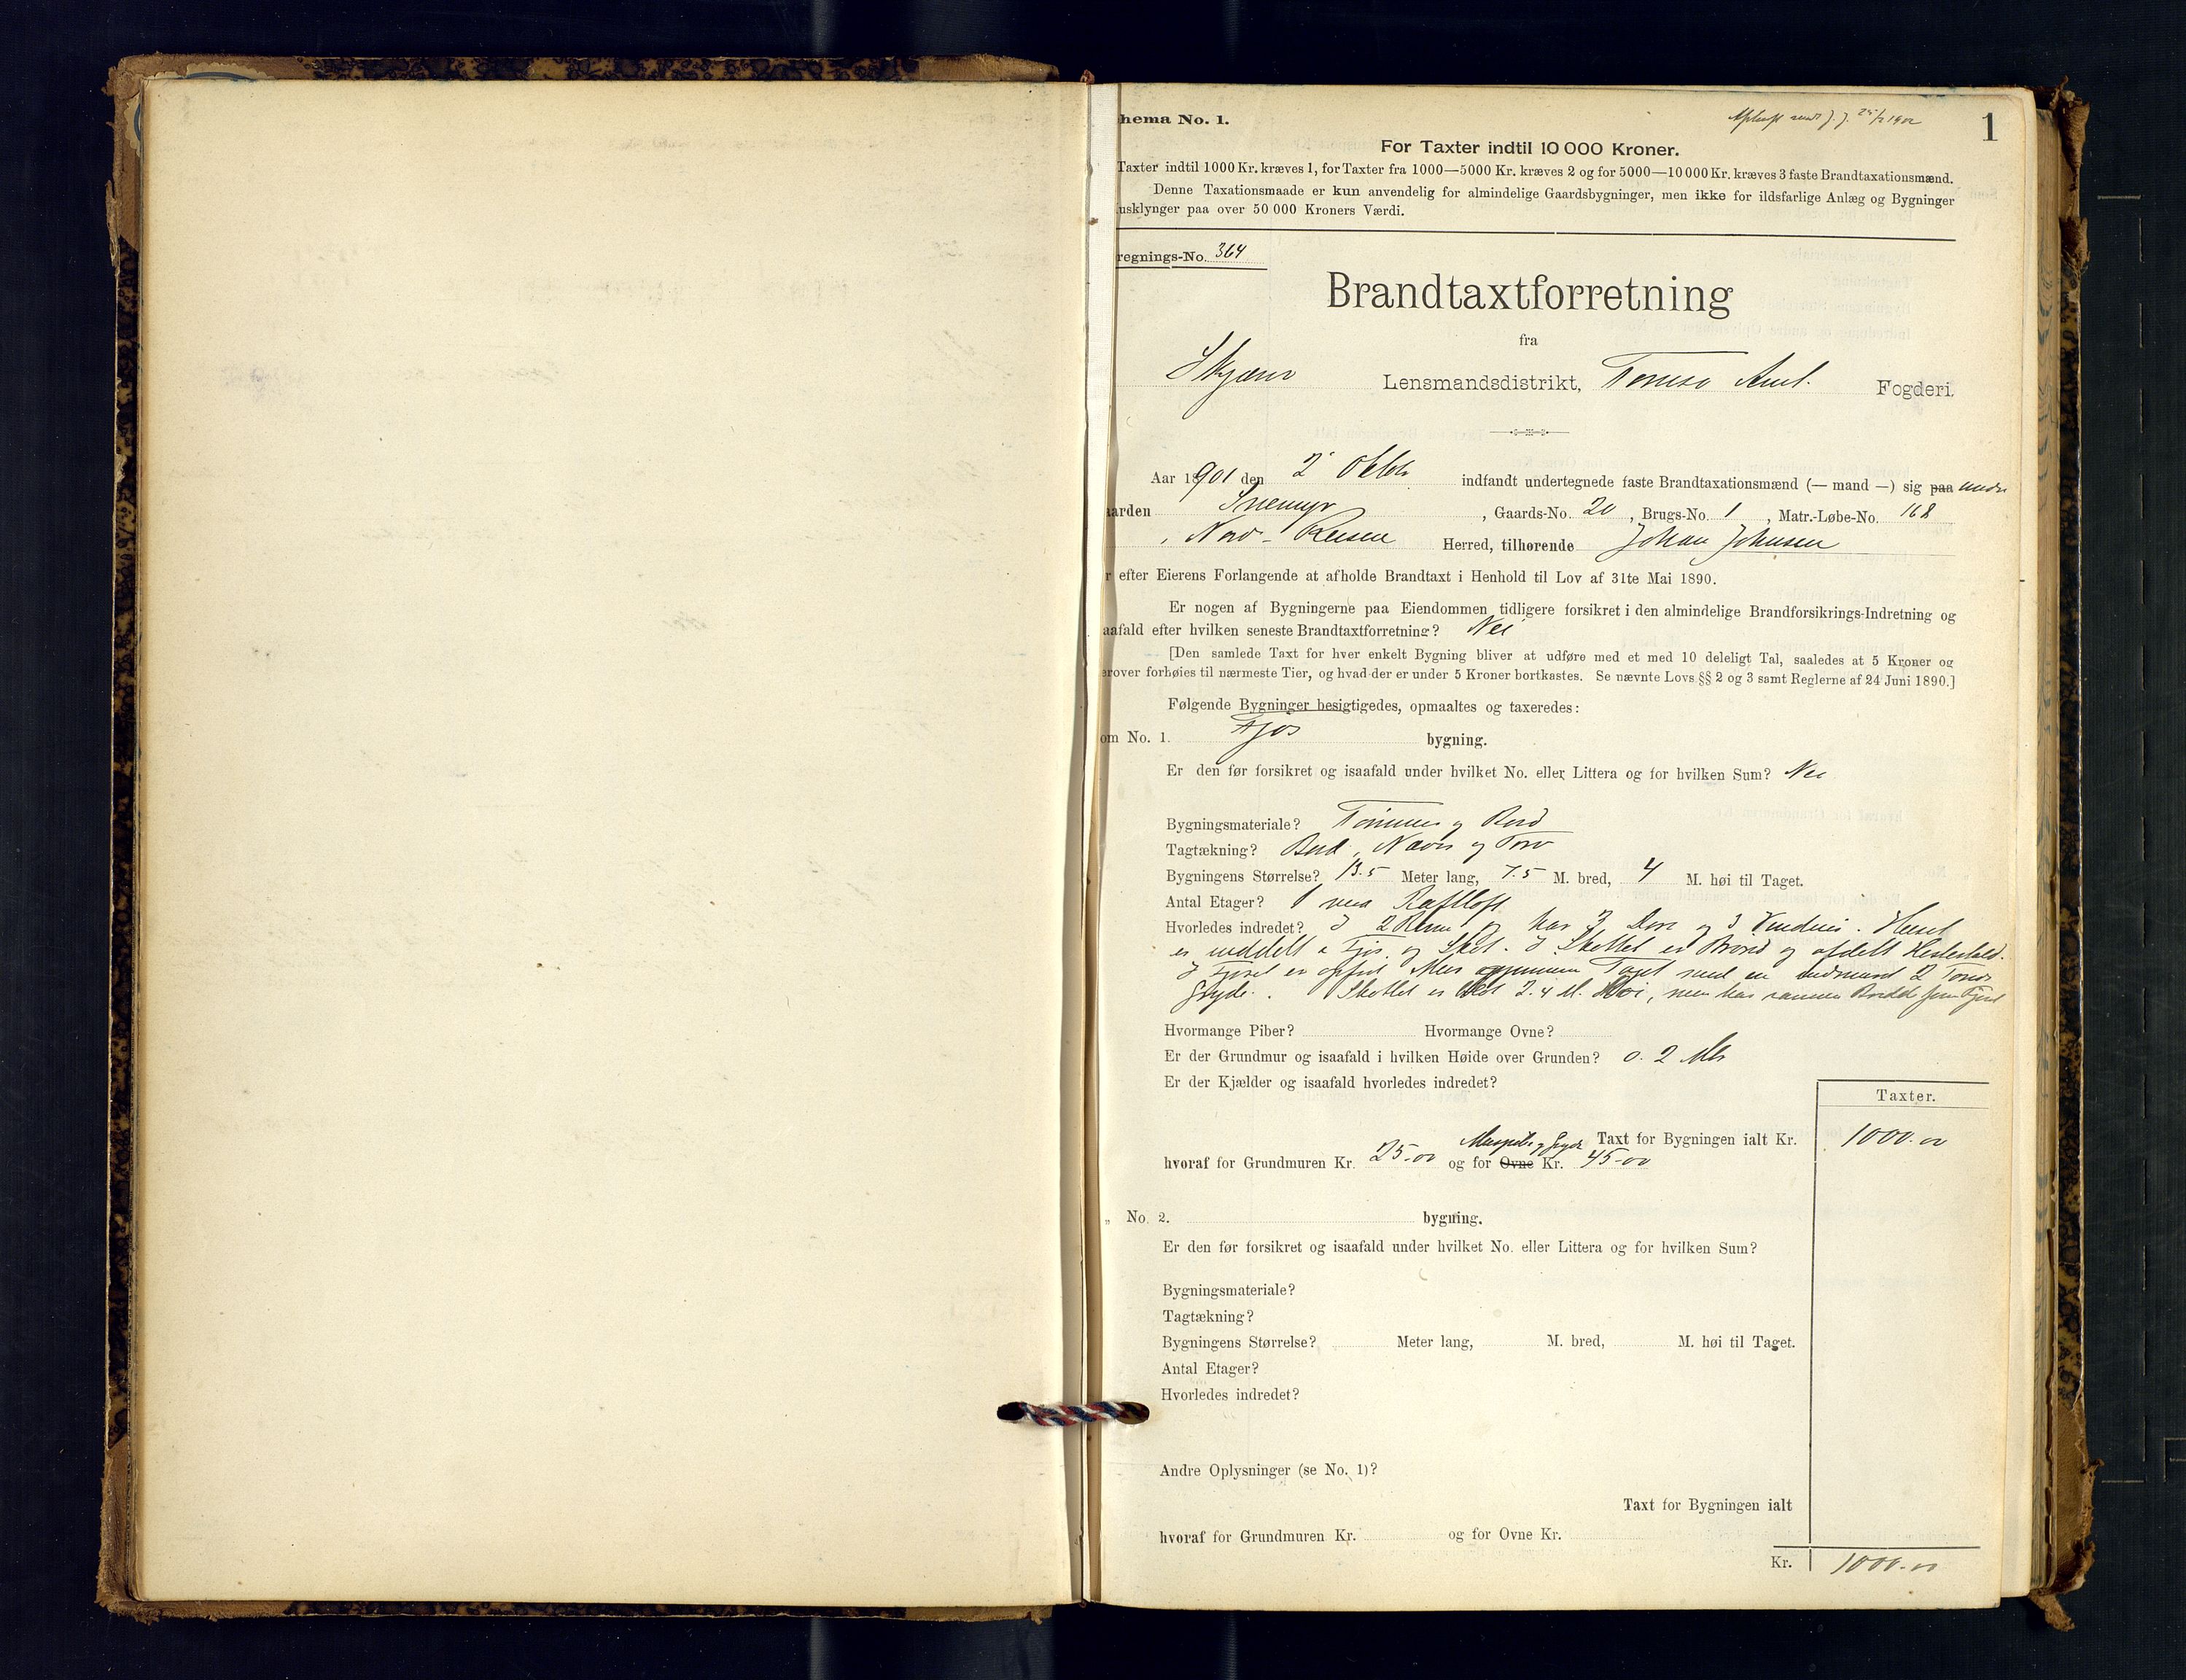 1
hema No. 1.
For Taxter indtil 10 000 Kroner.
Taxter indtil 1000 Kr. kræves 1, for Taxter fra 1000—5000 Kr. kræves 2 og for 5000—10 000 Kr. kræves 3 faste Brandtaxationsmænd.
Denne Taxationsmaade er kun anvendelig for almindelige Gaardsbygninger, men ikke for ildsfarlige Anlæg og Bygninger
usklynger paa over 50 000 Kroners Værdi.
regnings-No. 364
Brandtaxtforretning
fra
Skjærv Lensmandsdistrikt, Tromsø Amt. Fogderi.
Aar 1901 den 2 Oktbr indfandt undertegnede faste Brandtaxationsmænd (— mand —) sig paa under
aarden Snemyr, Gaards-No. 20, Brugs-No. 1, Matr.-Løbe-No. 168
, Nord-Reisen Herred, tilhørende Johan Johnsen
r efter Eierens Forlangende at afholde Brandtaxt i Henhold til Lov af 31te Mai 1890.
Er nogen af Bygningerne paa Eiendommen tidligere forsikret i den almindelige Brandforsikrings-Indretning og
aafald efter hvilken seneste Brandtaxtforretning? Nei
[Den samlede Taxt for hver enkelt Bygning bliver at udføre med et med 10 deleligt Tal, saaledes at 5 Kroner og
erover forhøies til nærmeste Tier, og hvad der er under 5 Kroner bortkastes. Se nævnte Lovs §§ 2 og 3 samt Reglerne af 24 Juni 1890.]
Følgende Bygninger besigtigedes, opmaaltes og taxeredes:
om No. 1. Fjøs bygning.
Er den før forsikret og isaafald under hvilket No. eller Littera og for hvilken Sum? Nei
Bygningsmateriale? Tømmer og Bord
Tagtækning? Bord, Næver og Torv
Bygningens Størrelse? 13.5 Meter lang, 7.5 M. bred, 4 M. høi til Taget.
Antal Etager? 1 med Raftloft
Hvorledes indredet? I 2 Rum og har 3 Døre og 3 Vinduer. Huset
er inddelt i Fjøs og Skot. I Skottet er Brønd og afdelt Hestestald.
I Fjøset er opført Mur gjennem Taget med en indmuret 2 Tønders
Gryde. Skottet er 2.4 M. Høi, men har samme Bredde som Fjøset
Hvormange Piber? Hvormange Ovne?
Er der Grundmur og isaafald i hvilken Høide over Grunden? 0.2 Mtr
Er der Kjælder og isaafald hvorledes indredet?
Taxter.
Taxt for Bygningen ialt Kr. 1000.00
Murpibe og Gryde
hvoraf for Grundmuren Kr. 25-00 og for Ovne Kr. 45-00
„ No. 2. bygning.
Er den før forsikret og isaafald under hvilket No. eller Littera og for hvilken Sum?
Bygningsmateriale?
Tagtækning?
Bygningens Størrelse? Meter lang, M. bred, M. høi til Taget.
Antal Etager?
Hvorledes indredet?
Andre Oplysninger (se No. 1)?
Taxt for Bygningen ialt
hvoraf for Grundmuren Kr. og for Ovne Kr.
Kr. 1000.00